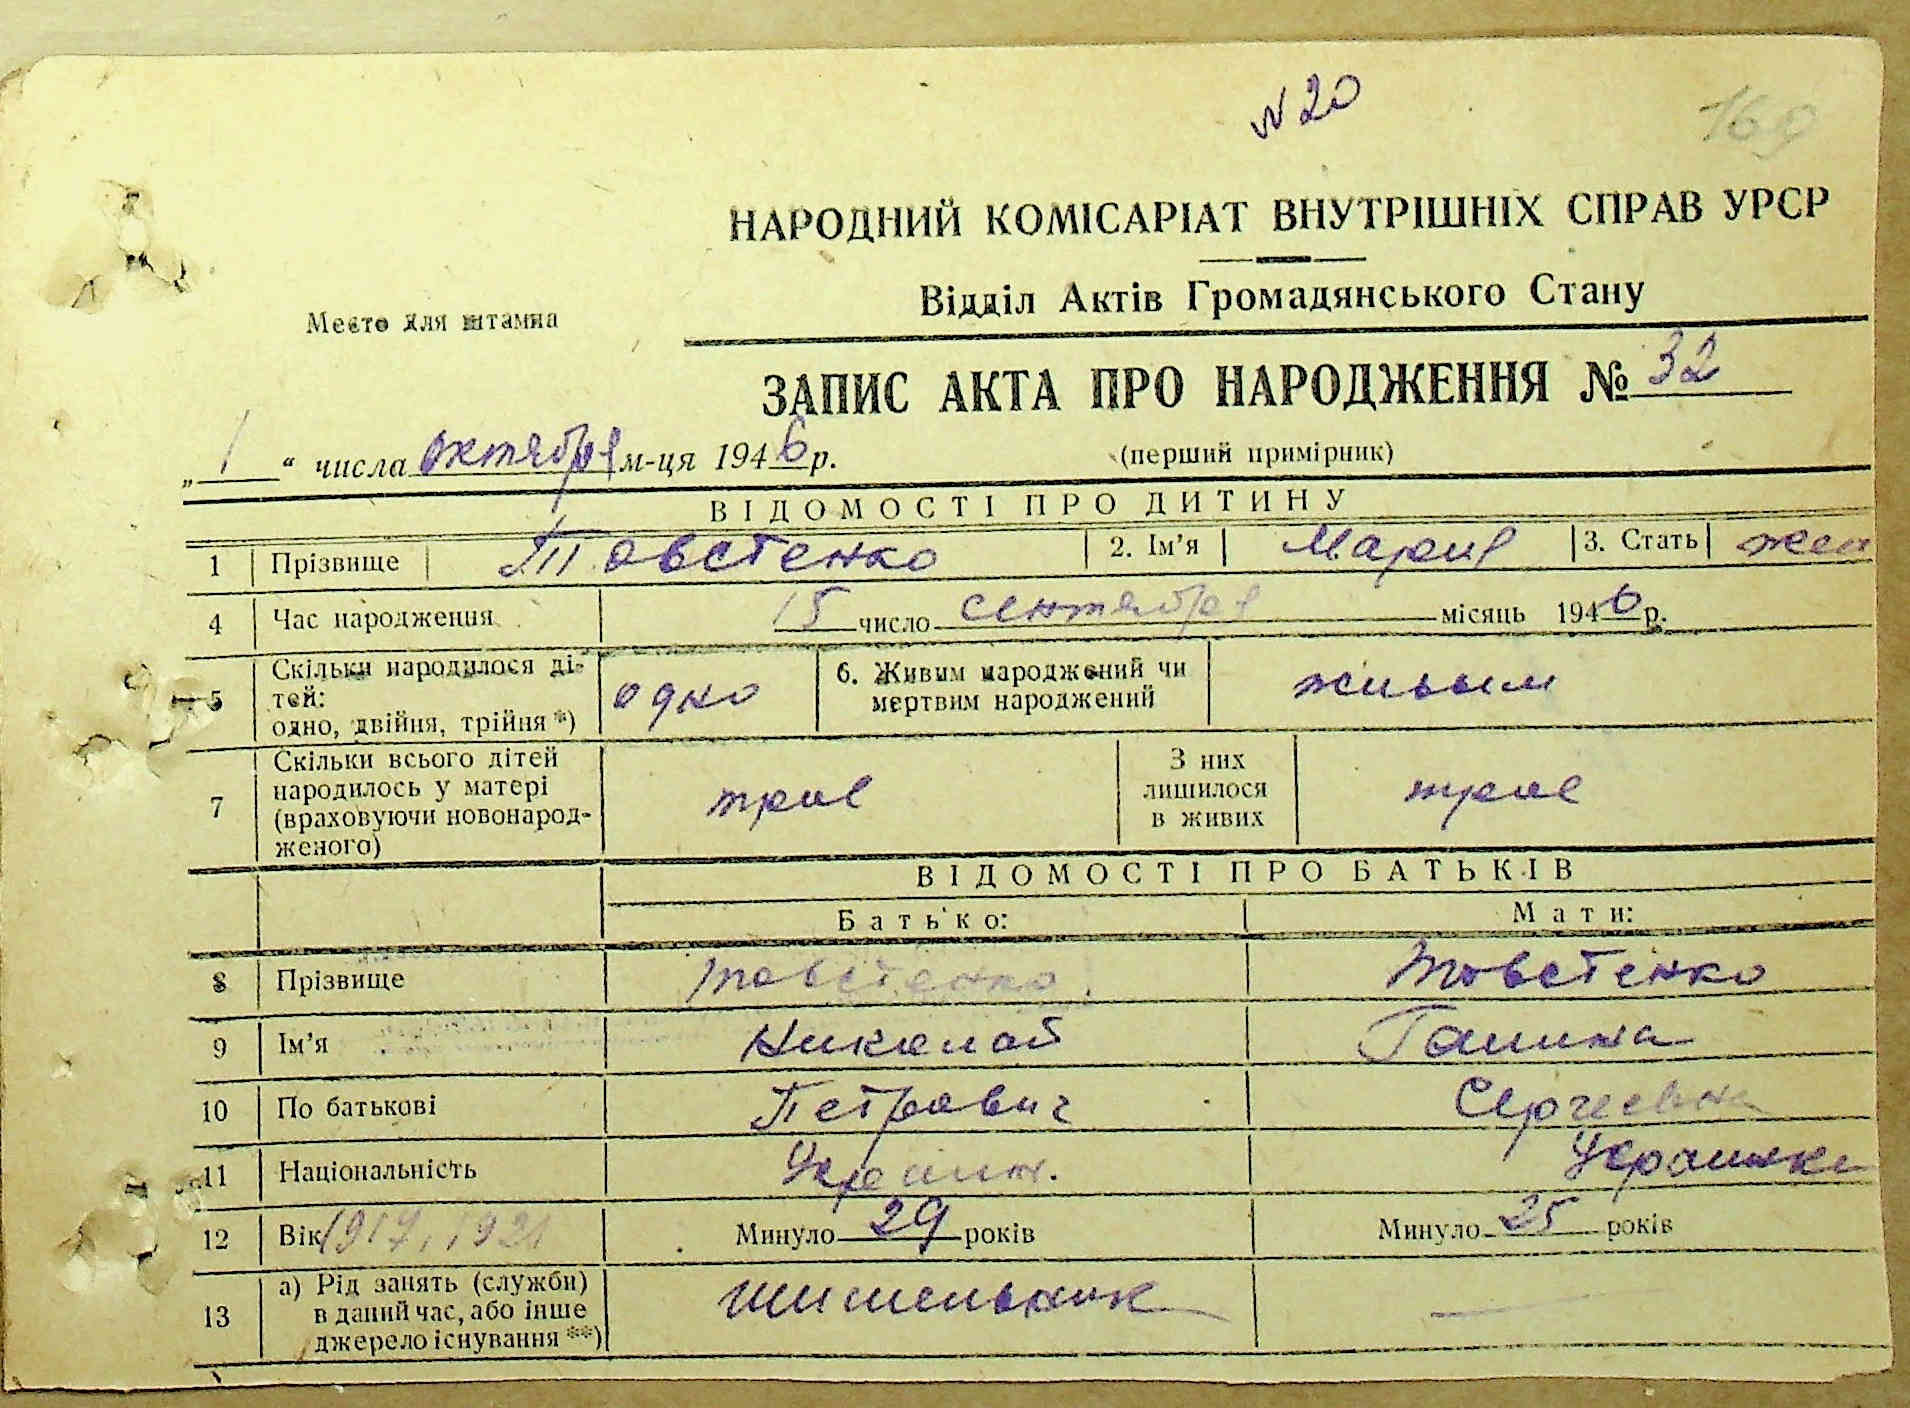 N 20
160
НАРОДНИЙ КОМІСАРІАТ ВНУТРІШНІХ СПРАВ УРСР
Відділ Актів Громадянського Стану
Место для штампа
ЗАПИС АКТА ПРО НАРОДЖЕННЯ № 32
„ 1 “ числа октября м-ця 1946 р.
(перший примірник)
ВІДОМОСТІ ПРО ДИТИНУ
1 Прізвище Товстенко 2. Ім’я Мария 3. Стать жен
4 Час народження 15 число сентября місяць 1946 р.
5 Скільки народилося ді-
тей:
одно, двійня, трійня *) одно 6. Живим народжений чи
мертвим народжений живым
7 Скільки всього дітей
народилось у матері
(враховуючи новонарод-
женого) трое З них
лишилося
в живих трое
ВІДОМОСТІ ПРО БАТЬКІВ
Батько: Мати:
8 Прізвище Товстенко Товстенко
9 Ім’я Николай Галина
10 По батькові Петрович Сергеевна
11 Національність Украин. Украинка
12 Вік 1917, 1921 Минуло 29 років Минуло 25 років
13 а) Рід занять (служби)
в даний час, або інше
джерело існування **) —